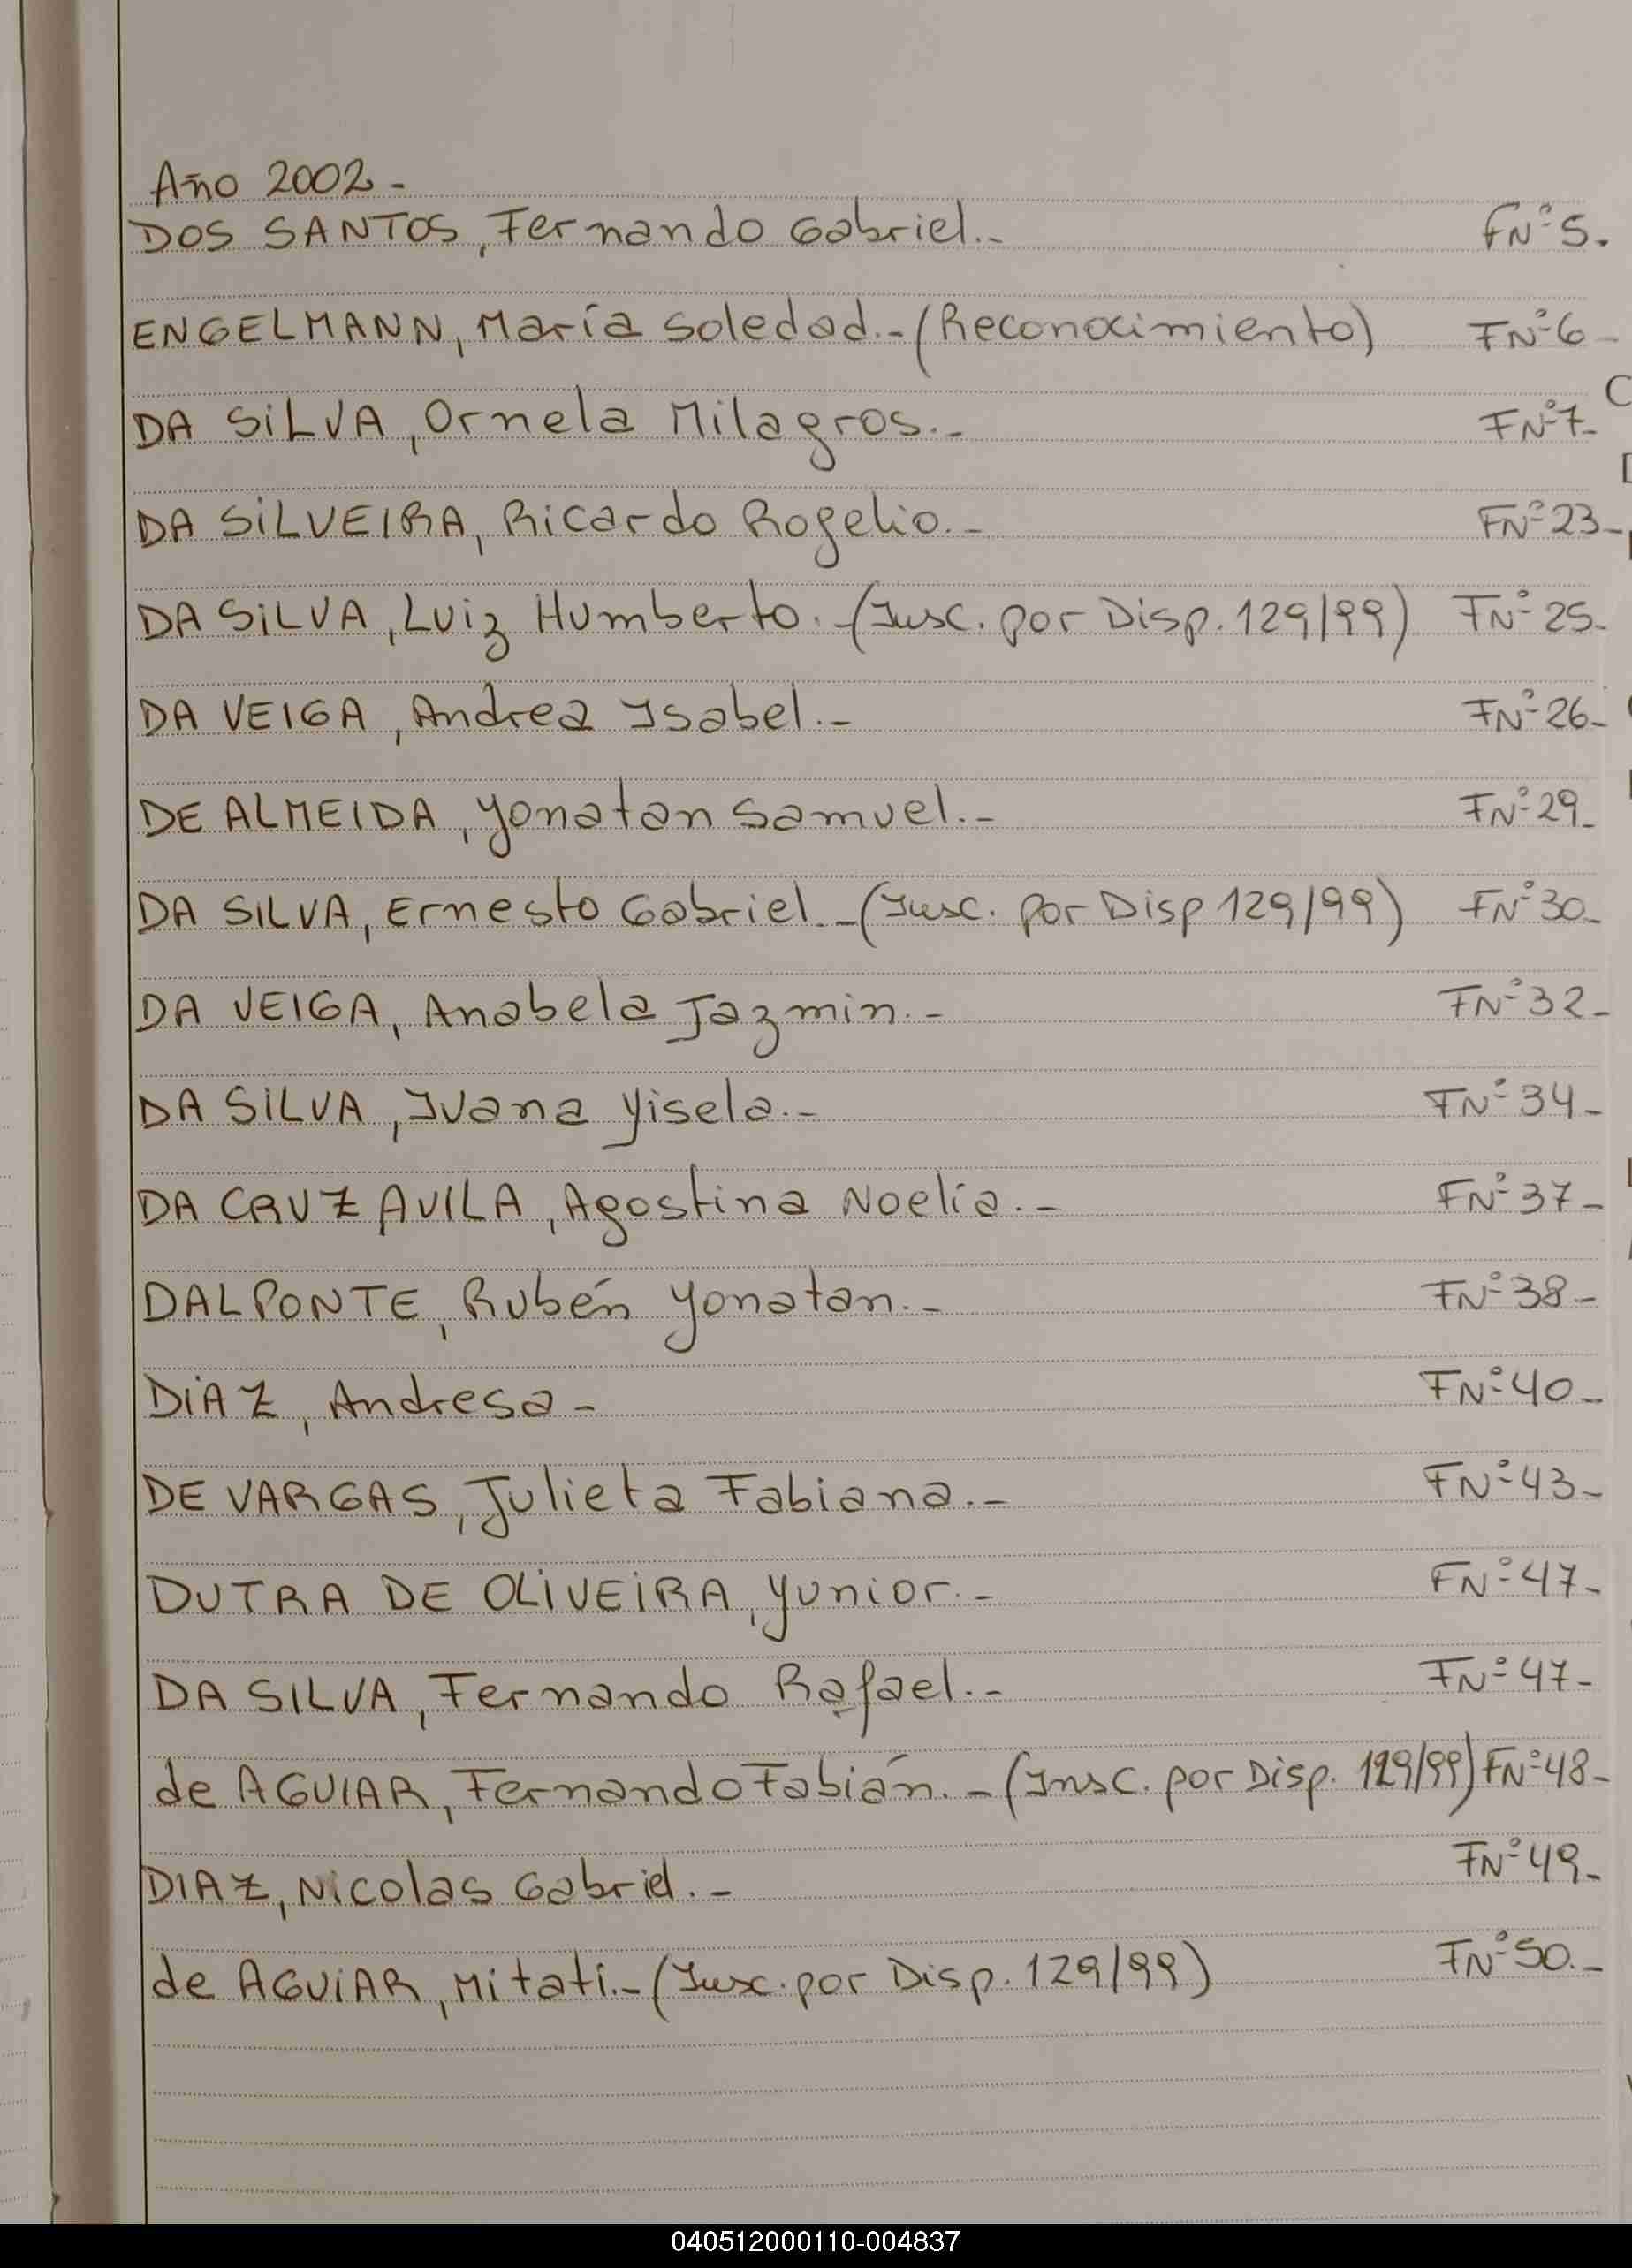 Año 2002.-
DOS SANTOS, Fernando Gabriel.- FNº5.
ENGELMANN, María Soledad.- (Reconocimiento) FNº6-
DA SiLVA, Ornela Milagros.- FNº7-
DA SiLVEIRA, Ricardo Rogelio.- FNº23-
DA SiLVA, Luiz Humberto.- (Insc. por Disp. 129/99) FNº25-
DA VEIGA, Andrea Isabel.- FNº26-
DE ALMEIDA, Yonatan Samuel.- FNº29-
DA SILVA, Ernesto Gabriel.- (Insc. por Disp 129/99) FNº30-
DA VEIGA, Anabela Jazmin.- FNº32-
DA SILVA, Ivana Yisela.- FNº34-
DA CRUZ AVILA, Agostina Noelia.- FNº37-
DALPONTE, Rubén Yonatan.- FNº38-
DiAZ, Andresa- FNº40-
DE VARGAS, Julieta Fabiana.- FNº43-
DUTRA DE OLiVEiRA, Yunior.- FNº47-
DA SILVA, Fernando Rafael.- FNº47-
de AGUIAR, Fernando Fabián.- (Insc. por Disp. 129/99) FNº48-
DIAZ, Nicolas Gabriel.- FNº49-
de AGUiAR, Mitati.- (Insc. por Disp. 129/99) FNº50.-
040512000110-004837